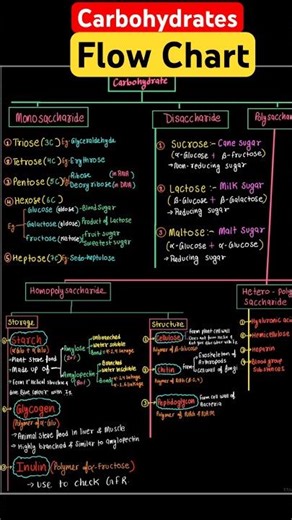 Carbohydrates
Flow Chart
Carbohydrate
Monosaccharide
Disaccharide
Polysacc
① Triose (3C) Eg: Glyceraldehyde
② Tetrose (4C) Eg: Erythrose
③ Pentose (5C) Eg: Ribose (in RNA)
Deoxyribose (in DNA)
④ Hexose (6C)
Glucose (aldose) - Blood sugar
Eg: Galactose (aldose) Product of Lactose
Fructose (ketose) fruit sugar
Sweetest sugar
⑤ Heptose (7C) Eg: Sedoheptulose
① Sucrose :- Cane Sugar
(α-Glucose + β-fructose)
→ Non-reducing sugar
② Lactose :- Milk Sugar
(β-Glucose + β-Galactose)
→ Reducing sugar
③ Maltose :- Malt Sugar
(α-Glucose + α-Glucose)
→ Reducing sugar
Homopolysaccharide
Hetero-poly
saccharide
Storage
① Starch
→ Plant store food
→ Made up of
Amylose
Unbranched
water soluble
Amylopectin
Branched
water insoluble
② Glycogen
(Polymer of α-Glu)
→ Animal store food in liver & Muscle
→ Highly branched & Similar to Amylopectin
③ Inulin (Polymer of α-Fructose)
→ use to check GFR.
Structure
① Cellulose
form plant cell wall
Polymer of β-Glucose
② Chitin
Exoskeleton of
Arthropods
cell wall of fungi
③ Peptidoglycan
form cell wall of
Bacteria
① Hyaluronic aci
② Hemicellulose
③ Heparin
④ Blood group
Substances